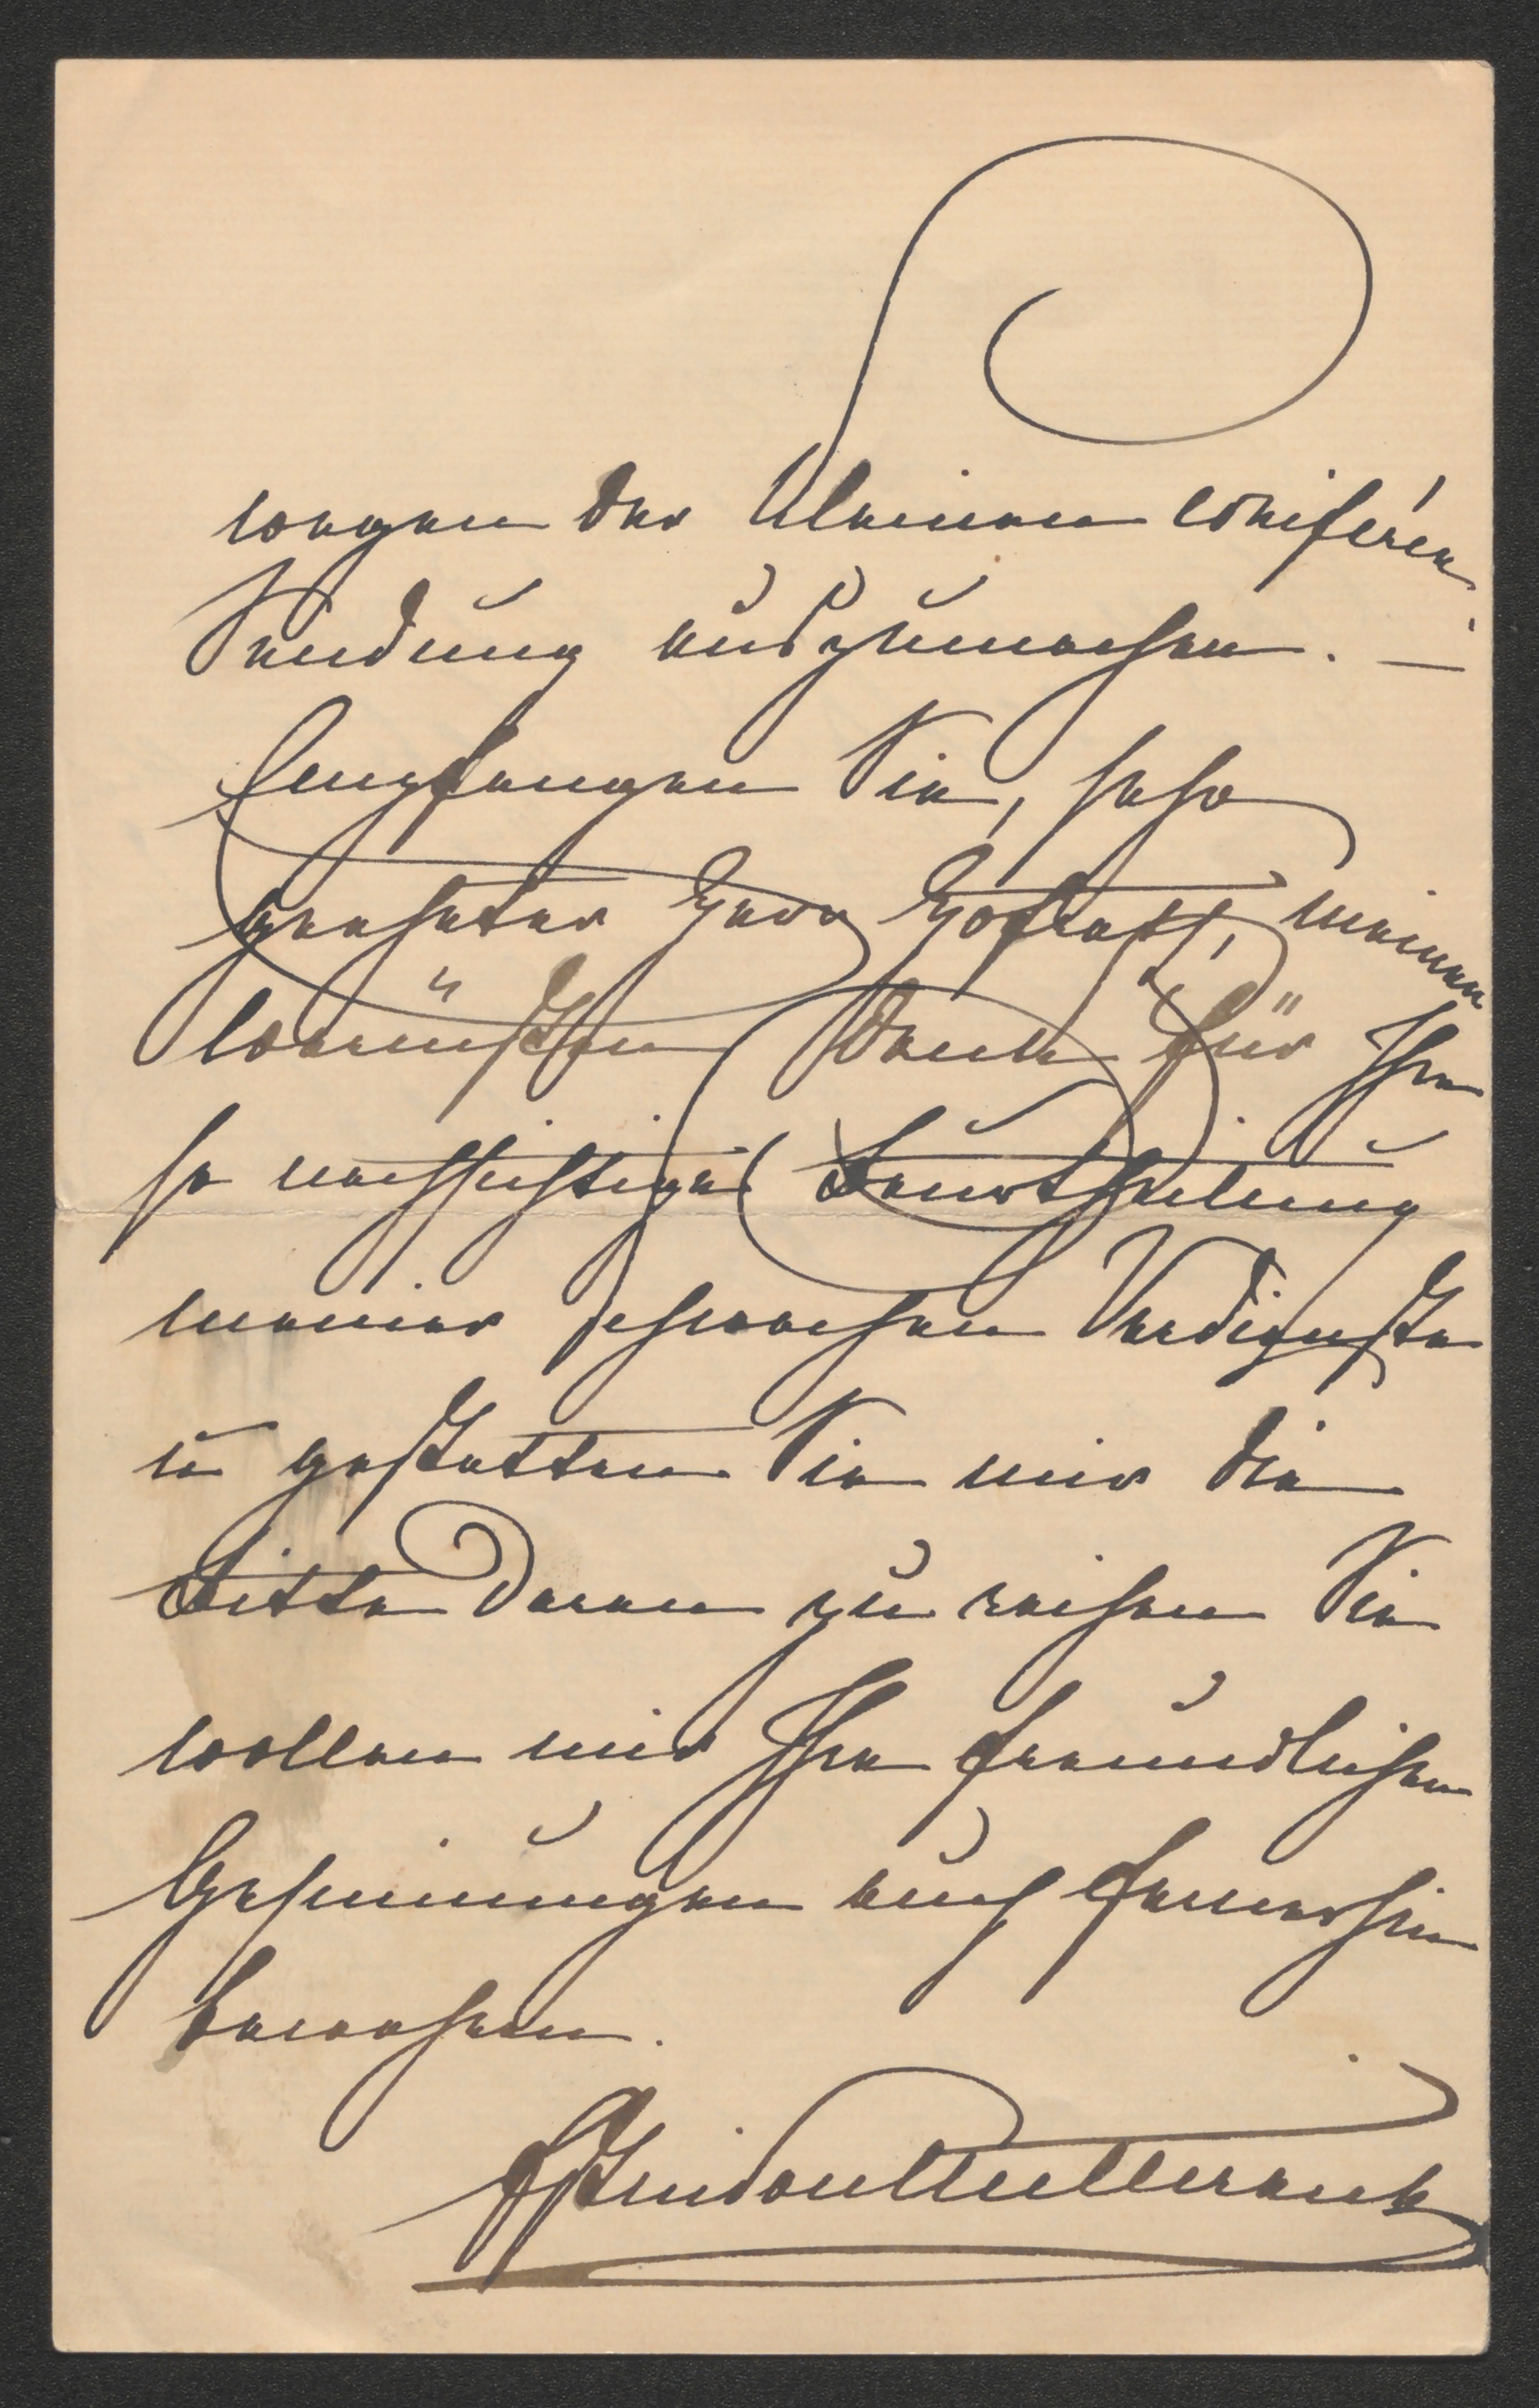 wegen der kleinen Coniferen
Sendung auszumachen. —
Empfangen Sie, sehr
geehrter Herr Hofrath, meinen
wärmsten Dank für Ihre
so nachsichtige Beurtheilung
meiner schwachen Verdienste
u gestatten Sie mir die
Bitte daran zu reihen Sie
wollen mir Ihre freundlichen
Gesinnungen auch fernerhin
bewahren.